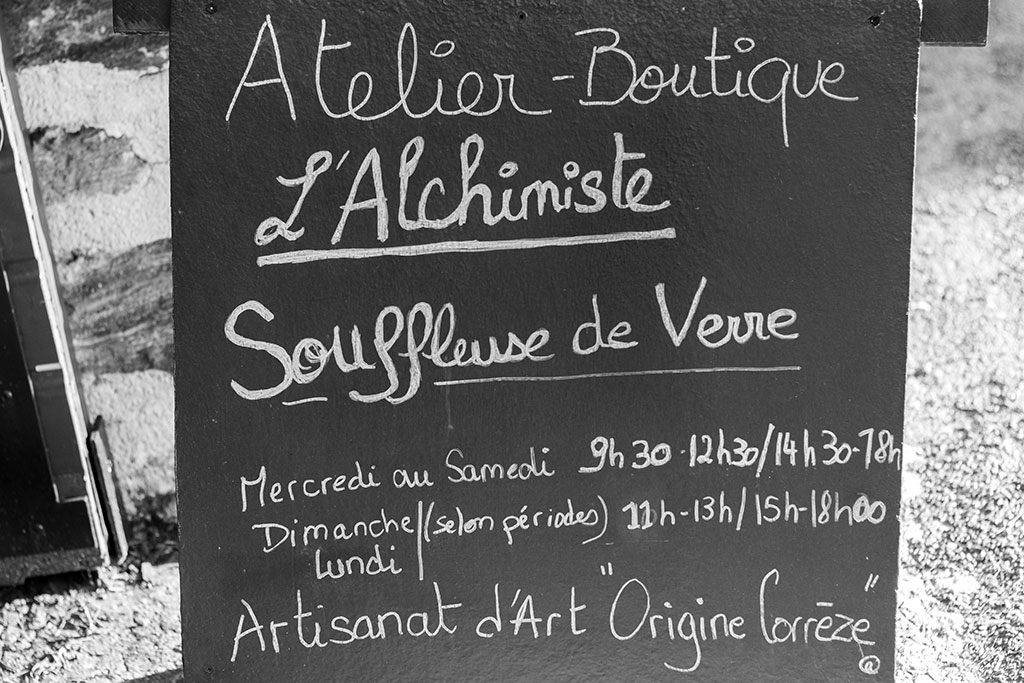 Atelier-Boutique
L'Alchimiste
Souffleuse de Verre
Mercredi au Samedi 9h30-12h30/14h30-18h
Dimanche/(selon périodes) 11h-13h/15h-18h00
Lundi
Artisanat d'Art "Origine Corrèze"